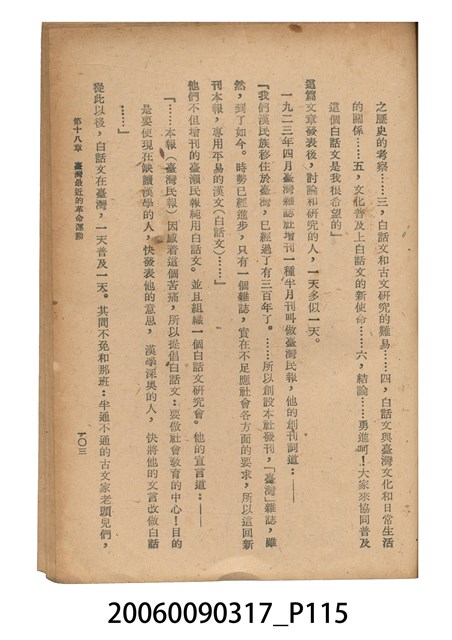 之歷史的考察……三，白話文和古文研究的難易……四，白話文與臺灣文化和日常生活
的關係……五，文化普及上白話文的新使命……六，結論……勇進呵！大家來協同普及
這個白話文是我很希望的」
這篇文章發表後，討論和研究的人，一天多似一天。
一九二三年四月臺灣雜誌社增刊一種半月刊叫做臺灣民報，他的創刊詞道：——
「我們漢民族移住於臺灣，已經過了有三百年了。……所以創設本社發刊，「臺灣」雜誌，雖
然，到了如今。時勢已經進步，只有一個雜誌，實在不足應社會各方面的要求，所以這回新
刊本報，專用平易的漢文（白話文）……」
他們不但增刊的臺灣民報純用白話文。並且組織一個白話文研究會。他的宣言道：——
「……本報（臺灣民報）因感着這個苦痛，所以提倡白話文：要做社會教育的中心！目的
是要使現在缺讀漢學的人，快發表他的意思，漢學深奧的人，快將他的文言改做白話
……」
從此以後，白話文在臺灣，一天普及一天。其間不免和那班：半通不通的古文家老頭兒們，
第十八章　臺灣最近的革命運動
一〇三
20060090317_P115